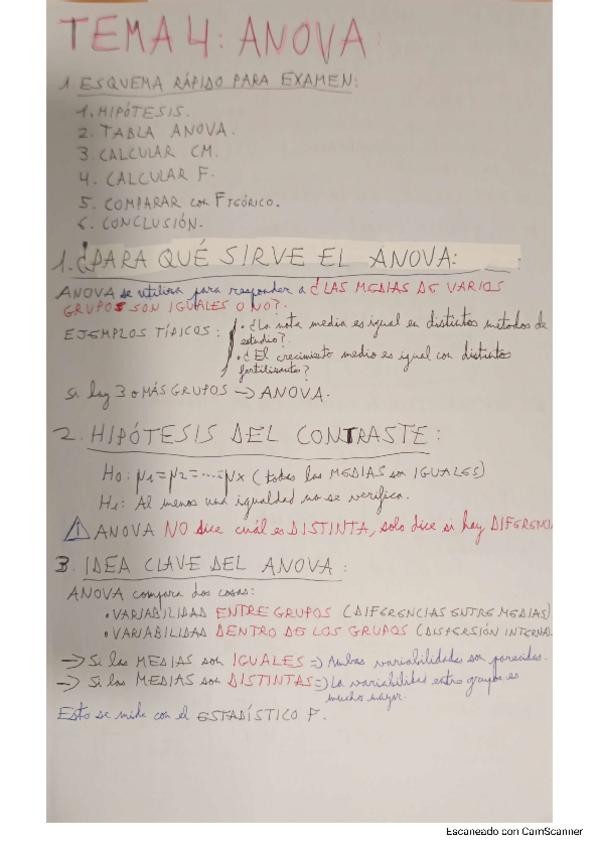 TEMA 4: ANOVA
1 ESQUEMA RÁPIDO PARA EXAMEN:
1. HIPÓTESIS.
2. TABLA ANOVA.
3. CALCULAR CM.
4. CALCULAR F.
5. COMPARAR con FTEÓRICO.
6. CONCLUSIÓN.
1. ¿PARA QUÉ SIRVE EL ANOVA:
ANOVA se utiliza para responder a ¿LAS MEDIAS DE VARIOS
GRUPOS SON IGUALES O NO?.
EJEMPLOS TÍPICOS: • ¿La nota media es igual en distintos métodos de
estudio?
• ¿El crecimiento medio es igual con distintos
fertilizantes?
Si hay 3 o MÁS GRUPOS → ANOVA.
2. HIPÓTESIS DEL CONTRASTE:
H0: μ1 = μ2 = ... = μx (todas las MEDIAS son IGUALES)
H1: Al menos una igualdad no se verifica.
⚠ ANOVA NO dice cuál es DISTINTA, solo dice si hay DIFERENCIA
3. IDEA CLAVE DEL ANOVA:
ANOVA compara dos cosas:
• VARIABILIDAD ENTRE GRUPOS (DIFERENCIAS ENTRE MEDIAS)
• VARIABILIDAD DENTRO DE LOS GRUPOS (DISPERSIÓN INTERNA
→ Si las MEDIAS son IGUALES => Ambas variabilidades son parecidas.
→ Si las MEDIAS son DISTINTAS => La variabilidad entre grupos es
mucho mayor.
Esto se mide con el ESTADÍSTICO F.
Escaneado con CamScanner